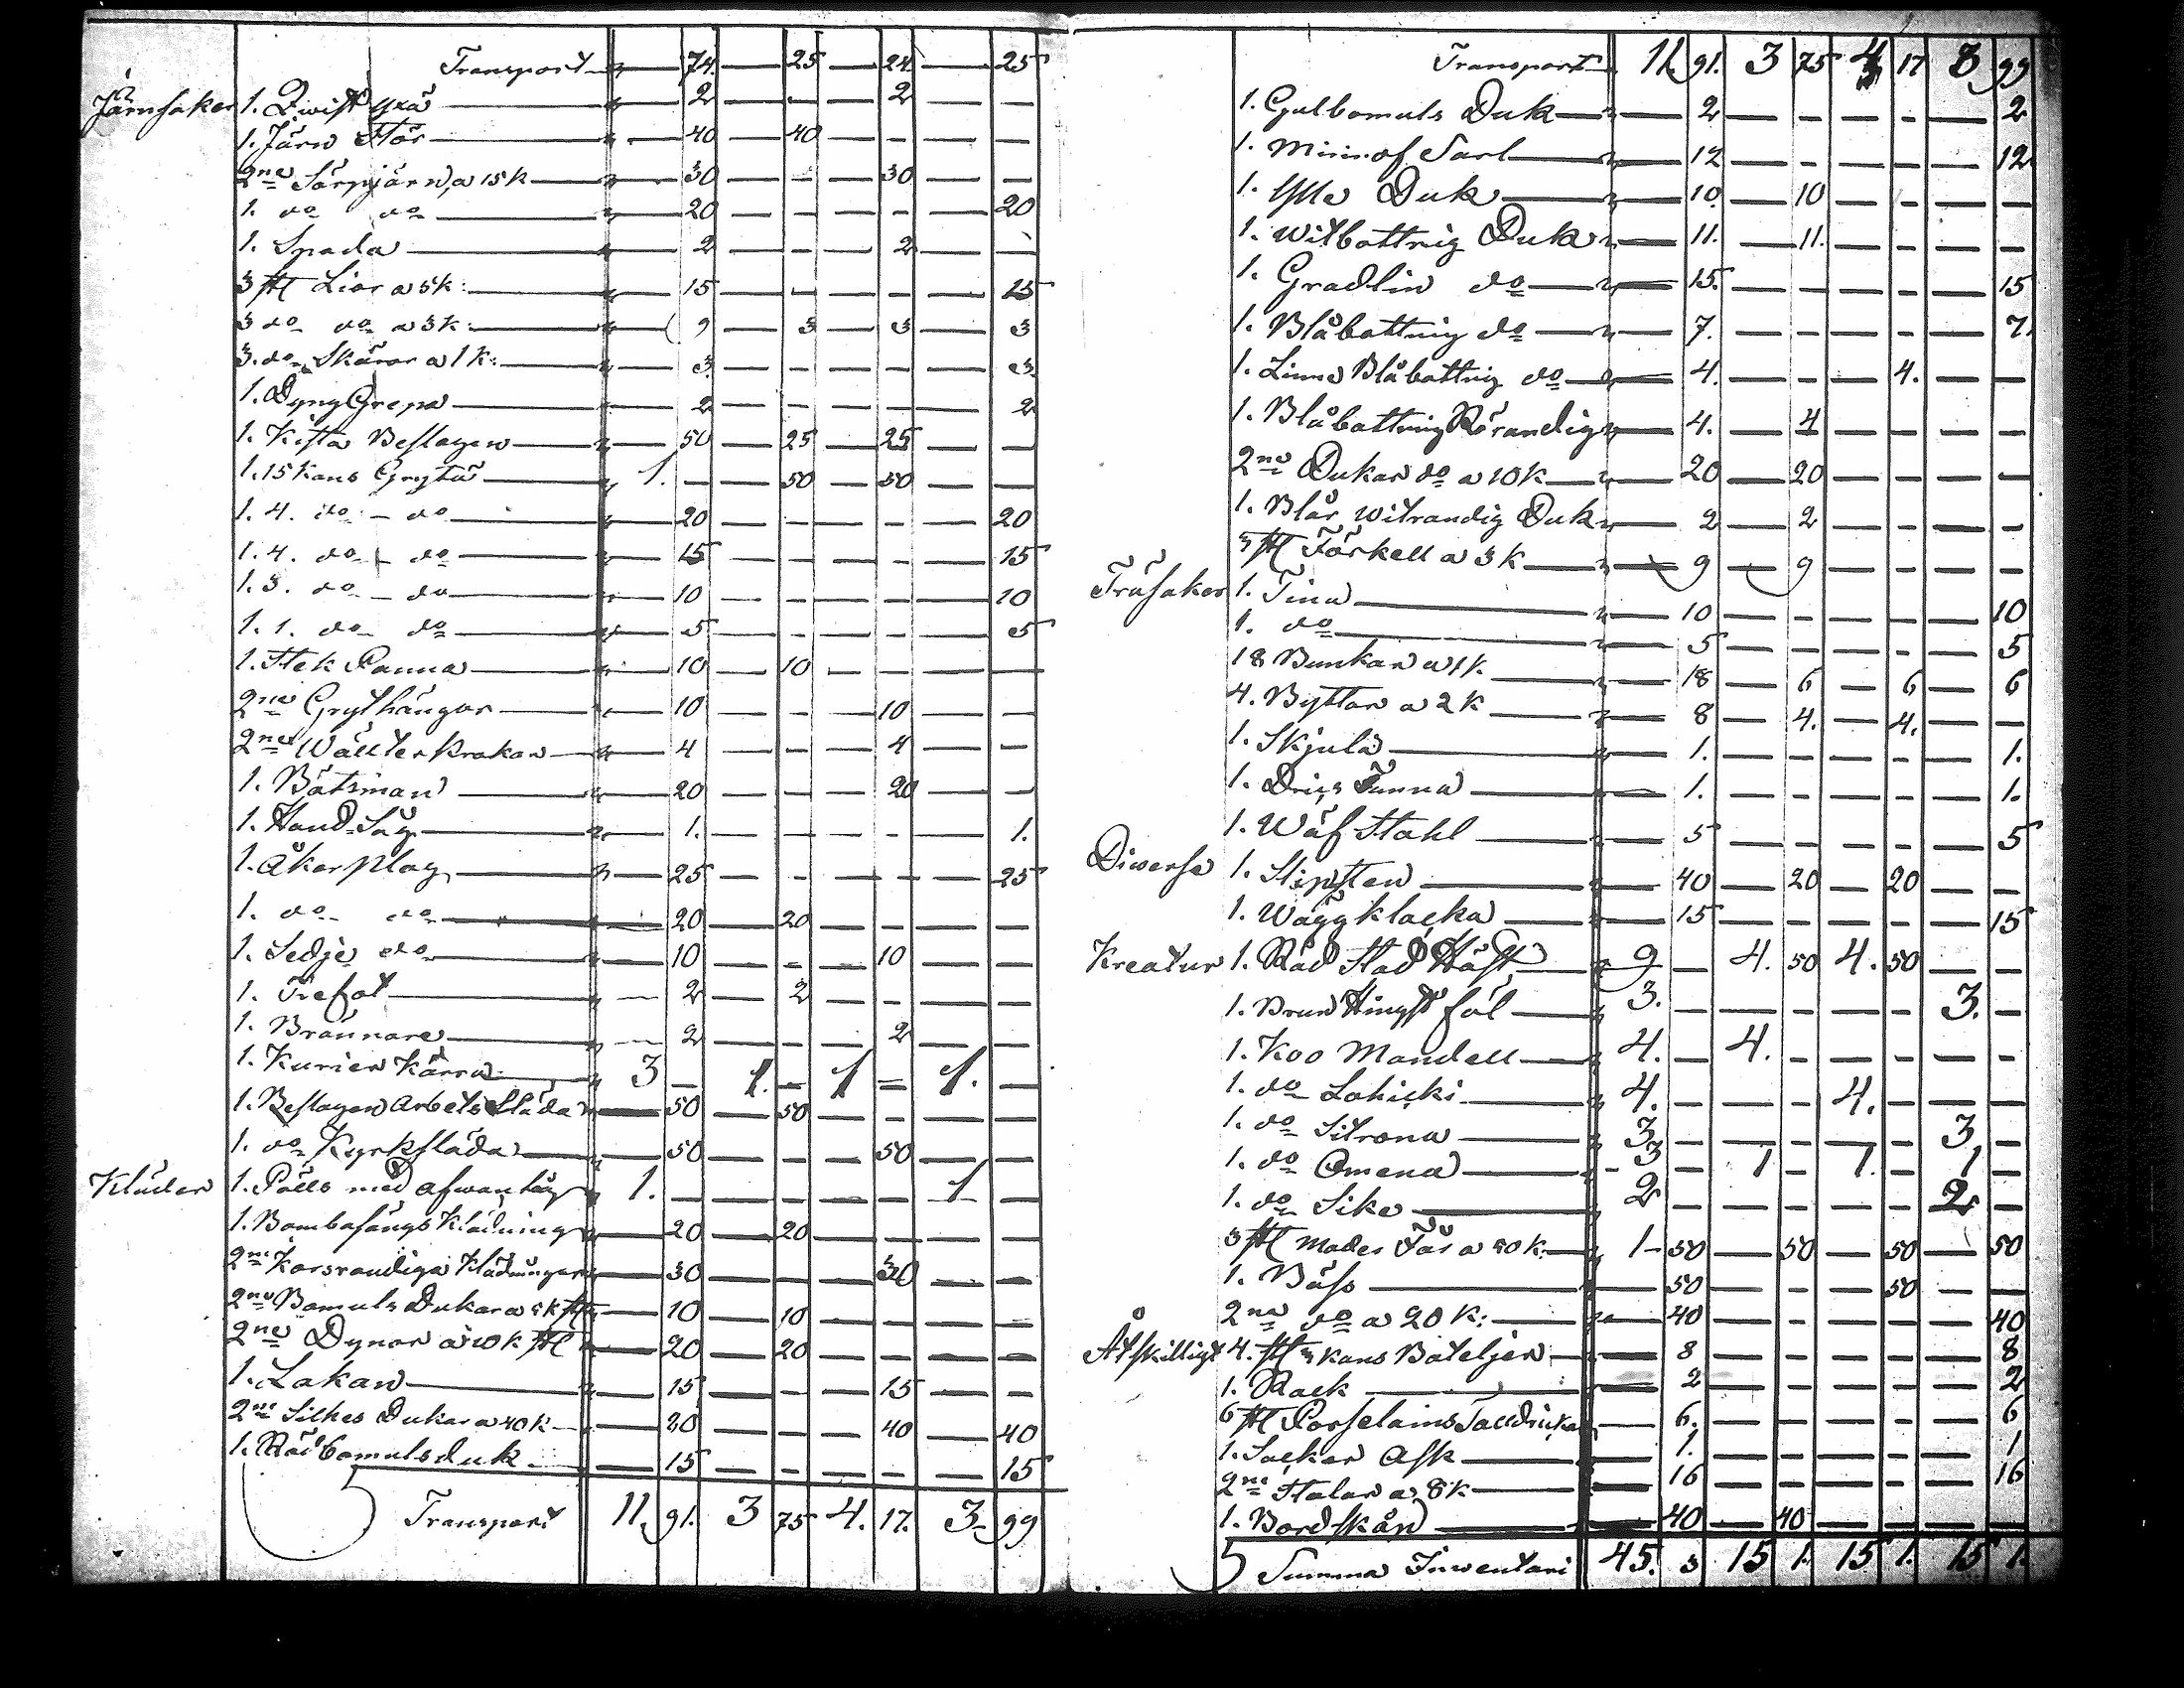 Transport 74. 25 24. 25
Järnsaker 1. Qwist yxa 2 2
1. Järn Stör 40 40
2ne Särpjärn, a 15 k 30 30
1. do do 20 20
1. Spada 2 2
3 st Liar a 5 k: 15 15
3 do do a 3 k: 9 3 3 3
3. do Skäror a 1 k: 3 3
1. DyngGrepa 2 2
1. Kista Beslagen 50 25 25
1. 15 Kans Gryta 1. 50 50
1. 4. do do 20 20
1. 4. do do 15 15
1. 3. do do 10 10
1. 1. do do 5 5
1. Stek Panna 10 10
2ne Grythängor 10 10
2ne Wällterkrokar 4 4
1. Båtsman 20 20
1. Hand-Såg 1. 1.
1. Åkerplog 25 25
1. do do 20 20
1. Sedje do 10 10
1. Trefot 2 2
1. Brännare 2 2
1. Kurier Kärra 3 1. 1 1.
1. Beslagen Arbets Släda 50 50
1. do Kyrksläda 50 50
Kläder 1. Pälls med afwan 1. 1
1. Bombasångs Klädning 20 20
2ne Korsrandiga Klädningar 30 30
2ne Bomuls Dukar a 5 k st 10 10
2ne Dynor a 10 k st 20 20
1. Lakan 15 15
2ne Silkes Dukar a 40 k 80 40 40
1. Röd bomulsduk 15 15
Transport 11. 91. 3 75 4. 17. 3. 99
Transport 11. 91. 3 75 4 17 3 99
1. Gulbomuls Duk 2 2
1. Sarl 12 12
1. Ylle Duk 10. 10
1. Witbottnig Duk 11. 11.
1. Gradlin do 15. 15
1. Blåbottnig do 7. 7.
1. Linne Blåbottnig do 4. 4.
1. Blåbottnig Rörandig 4. 4
2ne Dukar do a 10 K 20 20
1. Blår witrandig Duk 2 2
3 st Förkell a 3 K 9 9
Träsaker 1. Tina 10 10
1. do 5 5
18 Bunkar a 1 k. 18 6 6 6
4. Byttor a 2 K 8 4. 4.
1. Skjula 1. 1.
1. Drics Tunna 1. 1.
1. Wäf Stahl 5 5
Diwerse 1. Slipsten 40 20 20
1. Wäggklocka 15 15
Kreatur 1. Röd Stod Häst 9 4. 50 4. 50
1. Brun Hingst föl 3. 3.
1. Koo Mandell 4. 4.
1. do Lohicki 4. 4.
1. do Sitrona 3. 3
1. do Omena 3 1 1. 1
1. do Sike 2 2
3 st Moder Får a 50 K. 1 50 50 50 50
1. Bäss 50 50
2ne do a 20 K: 40 40
Åtskilligt 4. st Kans Boteljer 8 8
1. Rack 2 2
6 st Porselains Talldrickar 6. 6
1. Socker Ask 1. 1
2ne Stolar a 8 k 16 16
1. Bordskån 40 40
Summa Inwentari 45. 3 15 1. 15 1. 15 1.